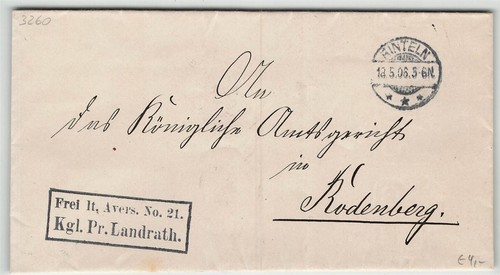 3260
RINTELN
13.5.06.5-6N.
An
das Königliche Amtsgericht
in
Rodenberg.
Frei lt, Avers. No. 21.
Kgl. Pr. Landrath.
€4,-